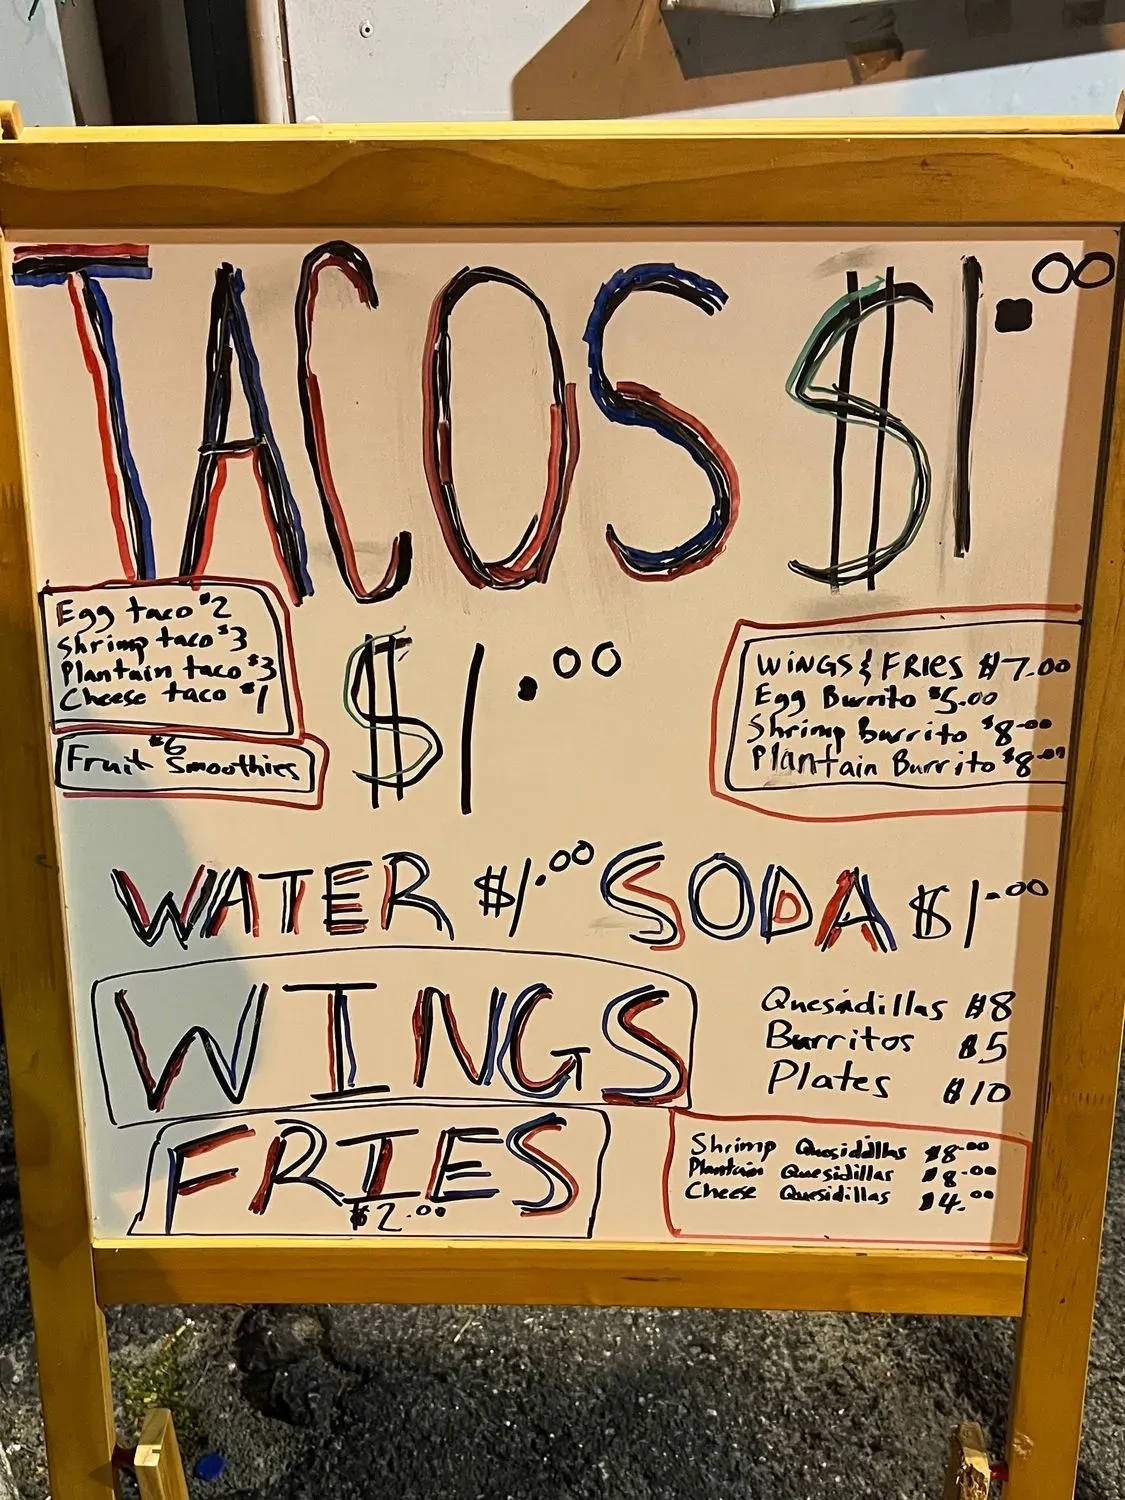 TACOS $1.00
Egg taco $2
Shrimp taco $3
Plantain taco $3
Cheese taco $1
Fruit $6 Smoothies
$1.00
WINGS & FRIES $7.00
Egg Burrito $5.00
Shrimp Burrito $8.00
Plantain Burrito $8.00
WATER $1.00 SODA $1.00
WINGS
FRIES
$2.00
Quesadillas $8
Burritos $5
Plates $10
Shrimp Quesidillas $8.00
Plantain Quesidillas $8.00
Cheese Quesidillas $4.00